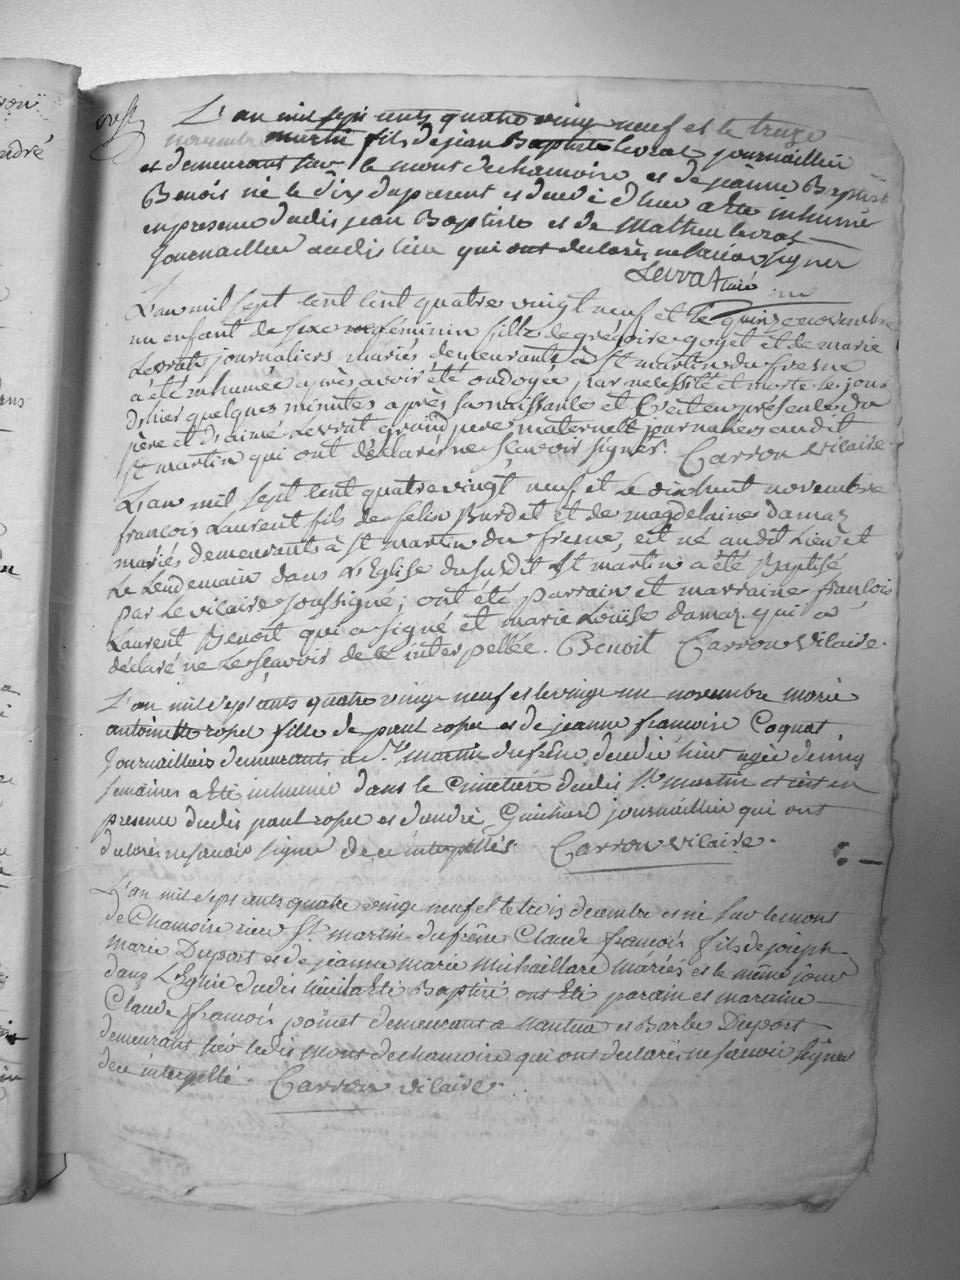 L'an mil sept cents quatre vingt neuf et le treize
novembre martin fils de jean Baptiste levrat journaillier
et demeurant sur le mont de chamoire et de jeanne Baptiste
Benoit né le dix du present et decedé d'hier a ete inhumé
en presence dudit jean Baptiste et de Mathieu levrat
journaillier audit lieu qui ont declarés ne savoir signer
Levrat curé
L'an mil sept cent quatre vingt neuf et le quinze novembre
un enfant de sexe feminin fille de grégoire goyet et de marie
Levrat journaliers mariés demeurants à st martin du fresne
a été inhumée après avoir été ondoyée par necessité et morte le jour
d'hier quelques minutes après sa naissance et c'est en présence du
père et d'aimé Levrat grand pere maternel journaliers audit
st martin qui ont déclarés ne sçavoir signer. Carron vicaire.
L'an mil sept cent quatre vingt neuf et le dixhuit novembre
françois Laurent fils de felix Burdet et de magdelaine damaz
mariés demeurants à st martin du fresne, est né audit Lieu et
Le Lendemain dans L'Eglise dususdit st martin a été Baptisé
par Le vicaire soussigné; ont été parrain et marraine françois
Laurent Benoit qui a signé et marie Louise damaz qui a
déclaré ne Le sçavoir de ce interpellée. Benoit Carron vicaire.
L'an mil sept cents quatre vingt neuf et le vingt un novembre marie
antoinette ropet fille de paul ropet et de jeanne francoise Coquat
journailliers demeurants a St martin du frêne decedée hier agée de cinq
semaines a ete inhumée dans le Cimetiere dudit St martin et c'est en
presence dudit paul ropet et d'andré Guichard journaillier qui ont
declarés ne savoir signer de ce interpellés. Carron vicaire.
L'an mil sept cents quatre vingt neuf et le trois decembre est né sur le mont
de Chamoire rière St martin du frêne Claude francois fils de joseph
marie Duport et de jeanne marie Michaillard mariés et le même jour
dans L'Eglise dudit lieu a ete Baptisé ont ete parain et maraine
Claude francois poncet demeurant a nantua et Barbe Duport
demeurant sur ledit mont de chamoire qui ont declarés ne savoir signer
de ce interpellé. Carron vicaire.